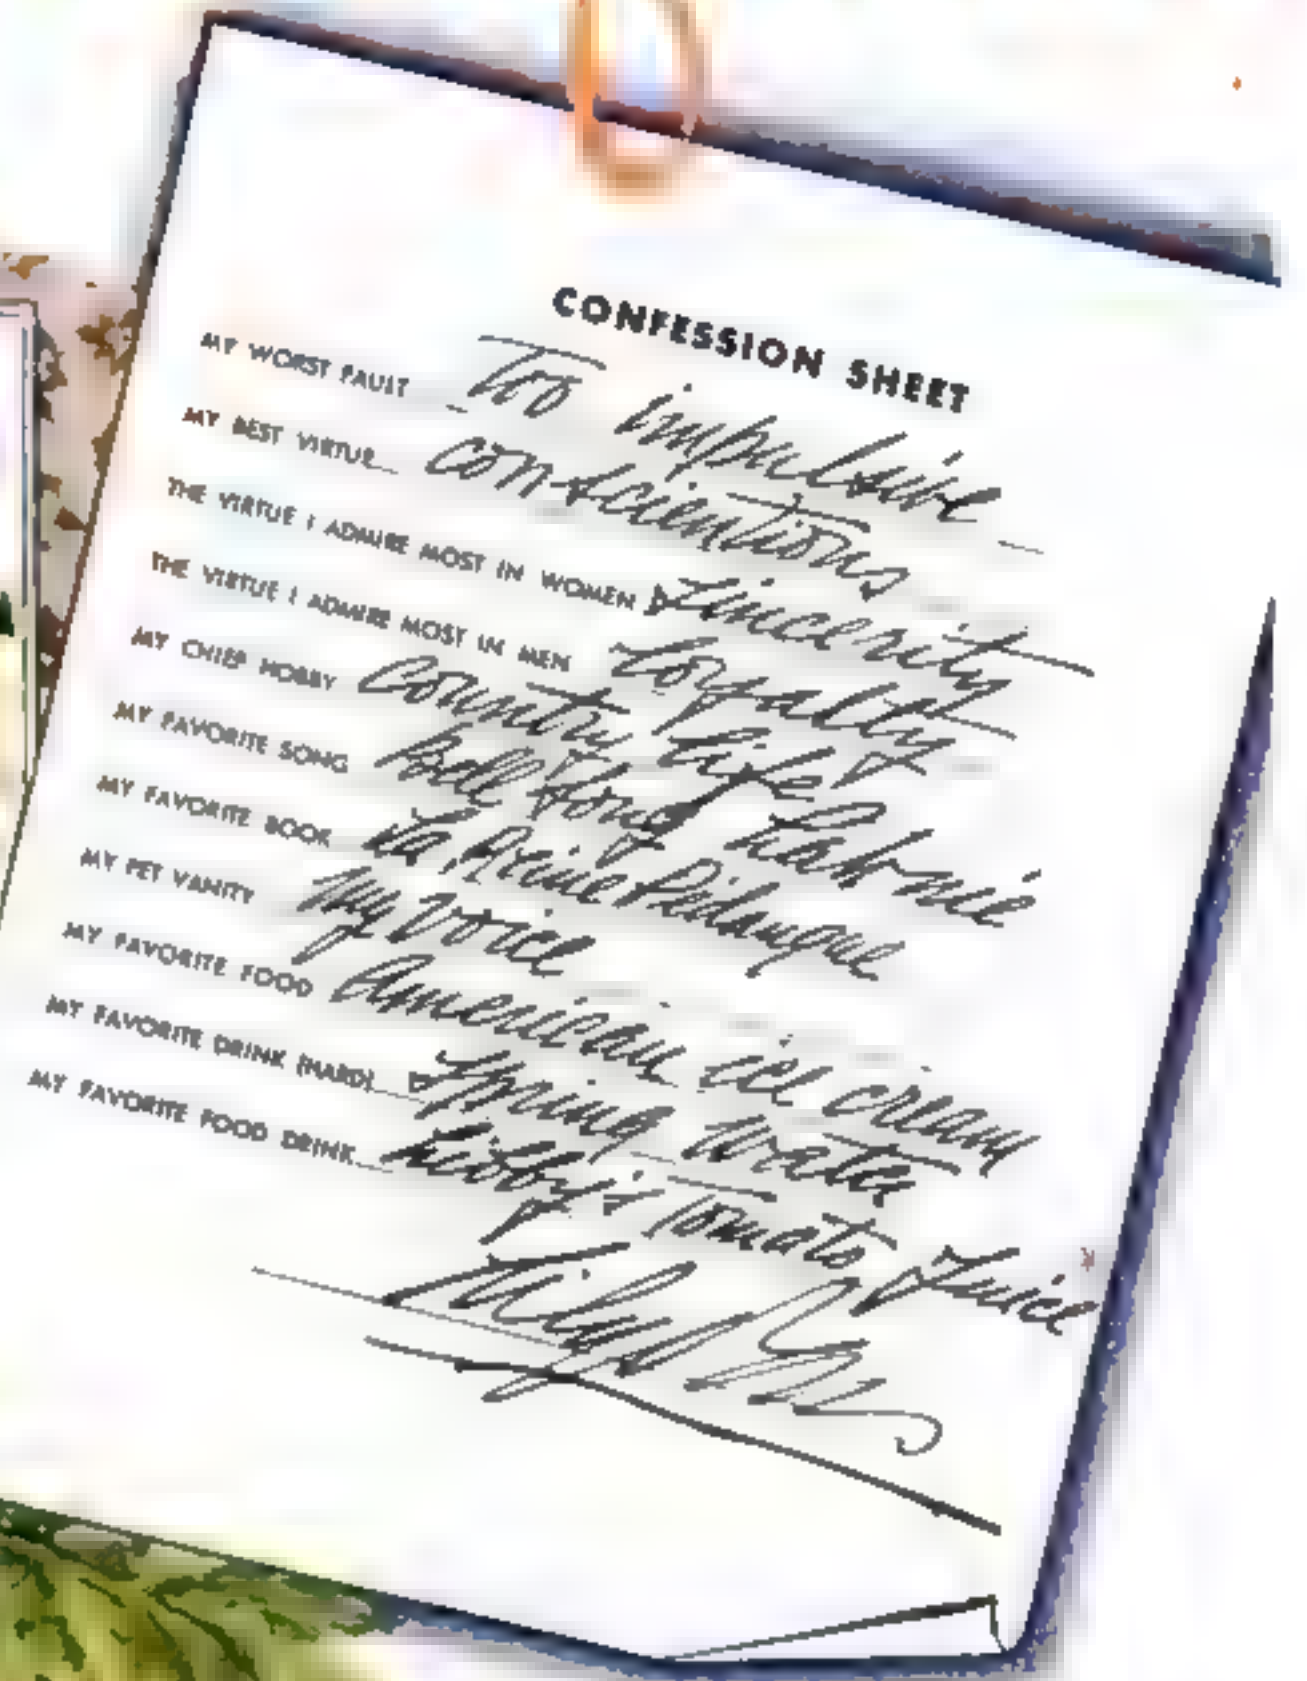 CONFESSION SHEET
MY WORST FAULT Too impulsive
MY BEST VIRTUE conscientious
THE VIRTUE I ADMIRE MOST IN WOMEN Sincerity
THE VIRTUE I ADMIRE MOST IN MEN Loyalty
MY CHIEF HOBBY Country life
MY FAVORITE SONG Bell Song Lakmé
MY FAVORITE BOOK La Reine Pédauque
MY PET VANITY My voice
MY FAVORITE FOOD American ice cream
MY FAVORITE DRINK (HARD) Spring water
MY FAVORITE FOOD DRINK Libby's Tomato Juice
Lily Pons